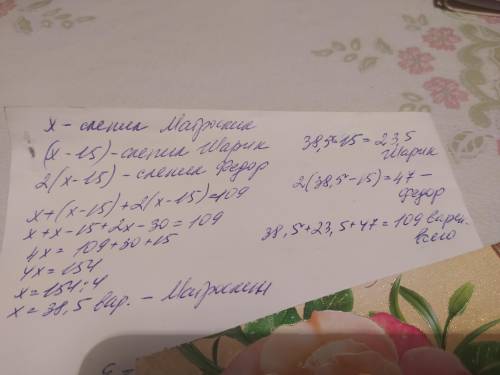 x - слепил Матроскин
(x - 15) - слепил Шарик
2(x - 15) - слепил Федор
x + (x - 15) + 2(x - 15) = 109
x + x - 15 + 2x - 30 = 109
4x = 109 + 30 + 15
4x = 154
x = 154 : 4
x = 38,5 вар. - Матроскин
38,5 - 15 = 23,5
Шарик
2(38,5 - 15) = 47 -
Федор
38,5 + 23,5 + 47 = 109 варен.
всего